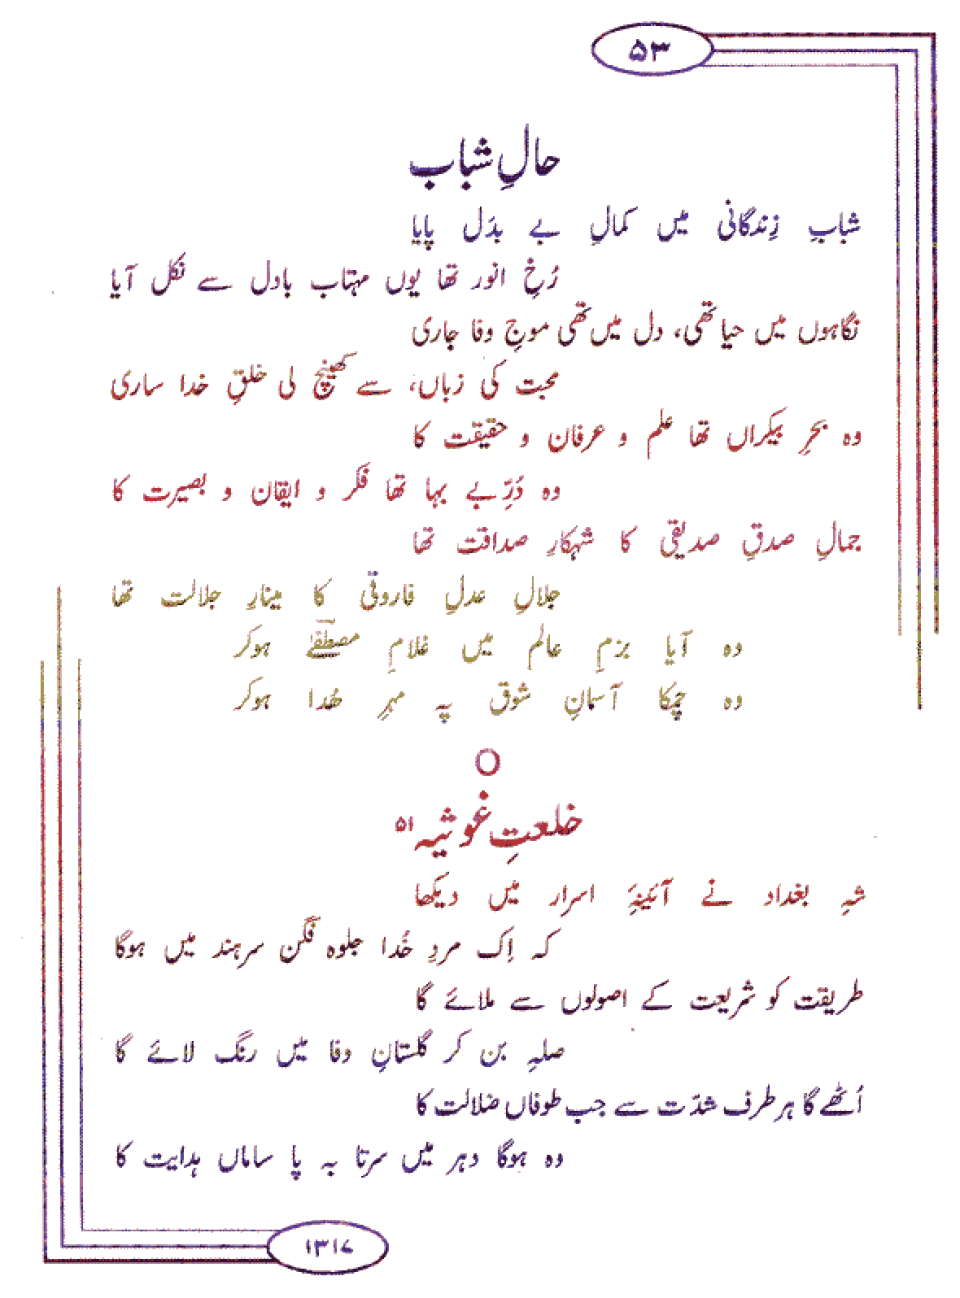 ۵۳
حالِ شباب
شبابِ زِندگانی میں کمالِ بے بدَل پایا
رُخِ انور تھا یوں مہتاب بادل سے نکل آیا
نگاہوں میں حیا تھی، دل میں تھی موجِ وفا جاری
محبت کی زباں، سے کھینچ لی خلقِ خدا ساری
وہ بحرِ بیکراں تھا علم و عرفان و حقیقت کا
وہ دُرِّ بے بہا تھا فکر و ایقان و بصیرت کا
جمالِ صدقِ صدیقی کا شہکارِ صداقت تھا
جلالِ عدلِ فاروقی کا مینارِ جلالت تھا
وہ آیا بزمِ عالم میں غلامِ مصطفےٰؐ ہوکر
وہ چمکا آسمانِ شوق پہ مہرِ ھُدا ہوکر
O
خلعتِ غوثیہ ۵۱
شہِ بغداد نے آئینۂِ اسرار میں دیکھا
کہ اِک مردِ خُدا جلوہ فگن سرہند میں ہوگا
طریقت کو شریعت کے اصولوں سے ملائے گا
صلہِ بن کر گلستانِ وفا میں رنگ لائے گا
اُٹھے گا ہر طرف شدّت سے جب طوفاں ضلالت کا
وہ ہوگا دہر میں سرتا بہ پا ساماں ہدایت کا
۱۳۱۷